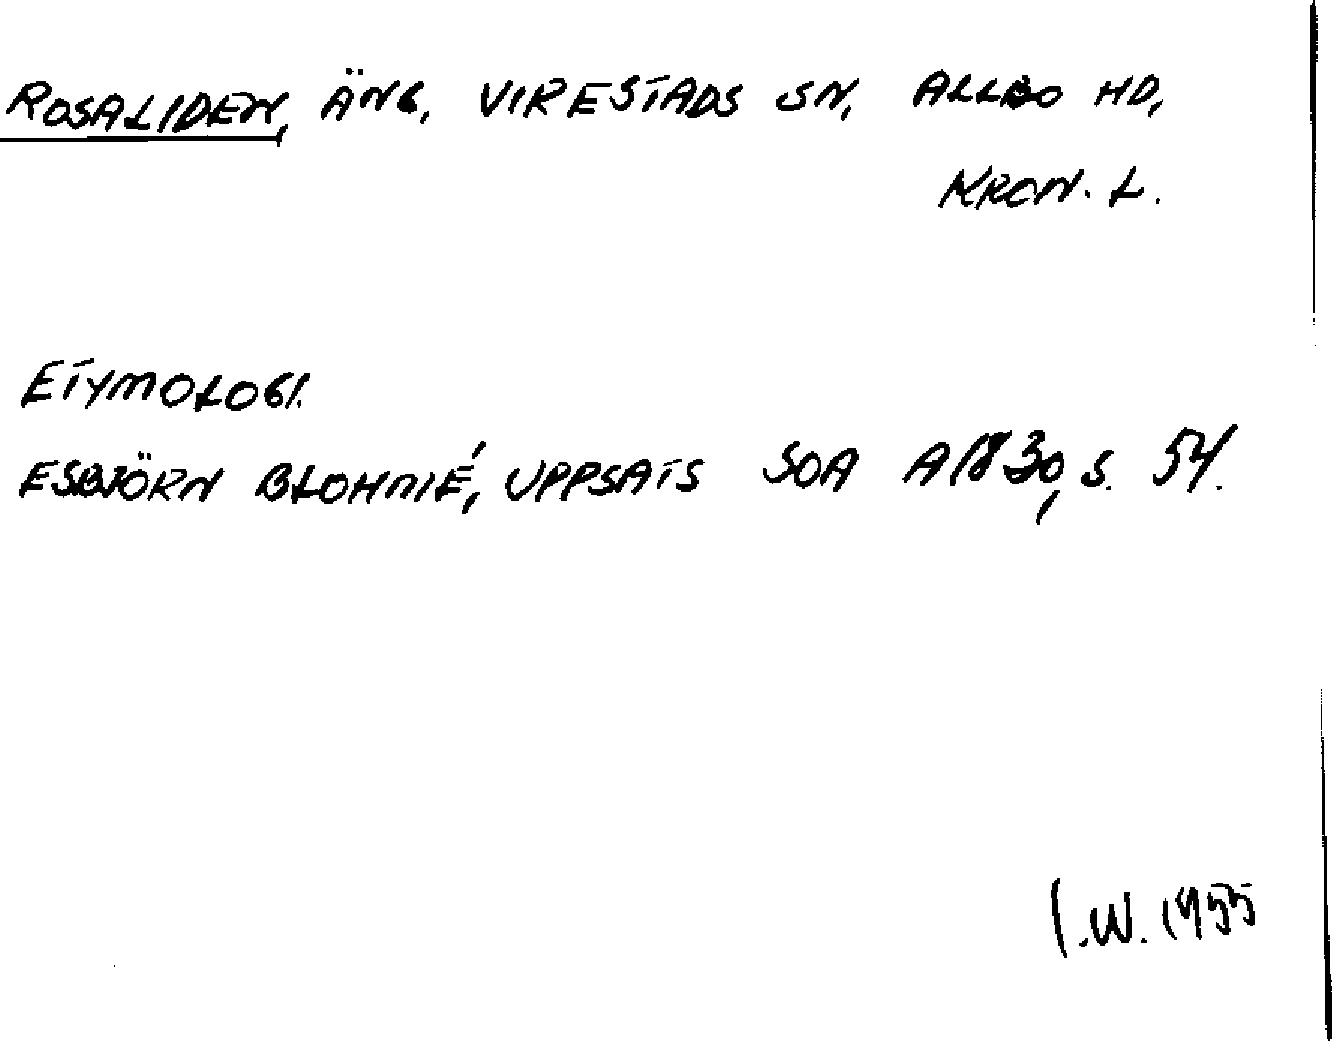 ROSALIDEN, ÄNG, VIRESTADS SN, ALLBO HD,
KRON. L.
ETYMOLOGI.
ESBJÖRN BLOHMÉ, UPPSATS SOA A1830, S. 54.
I.W. 1955